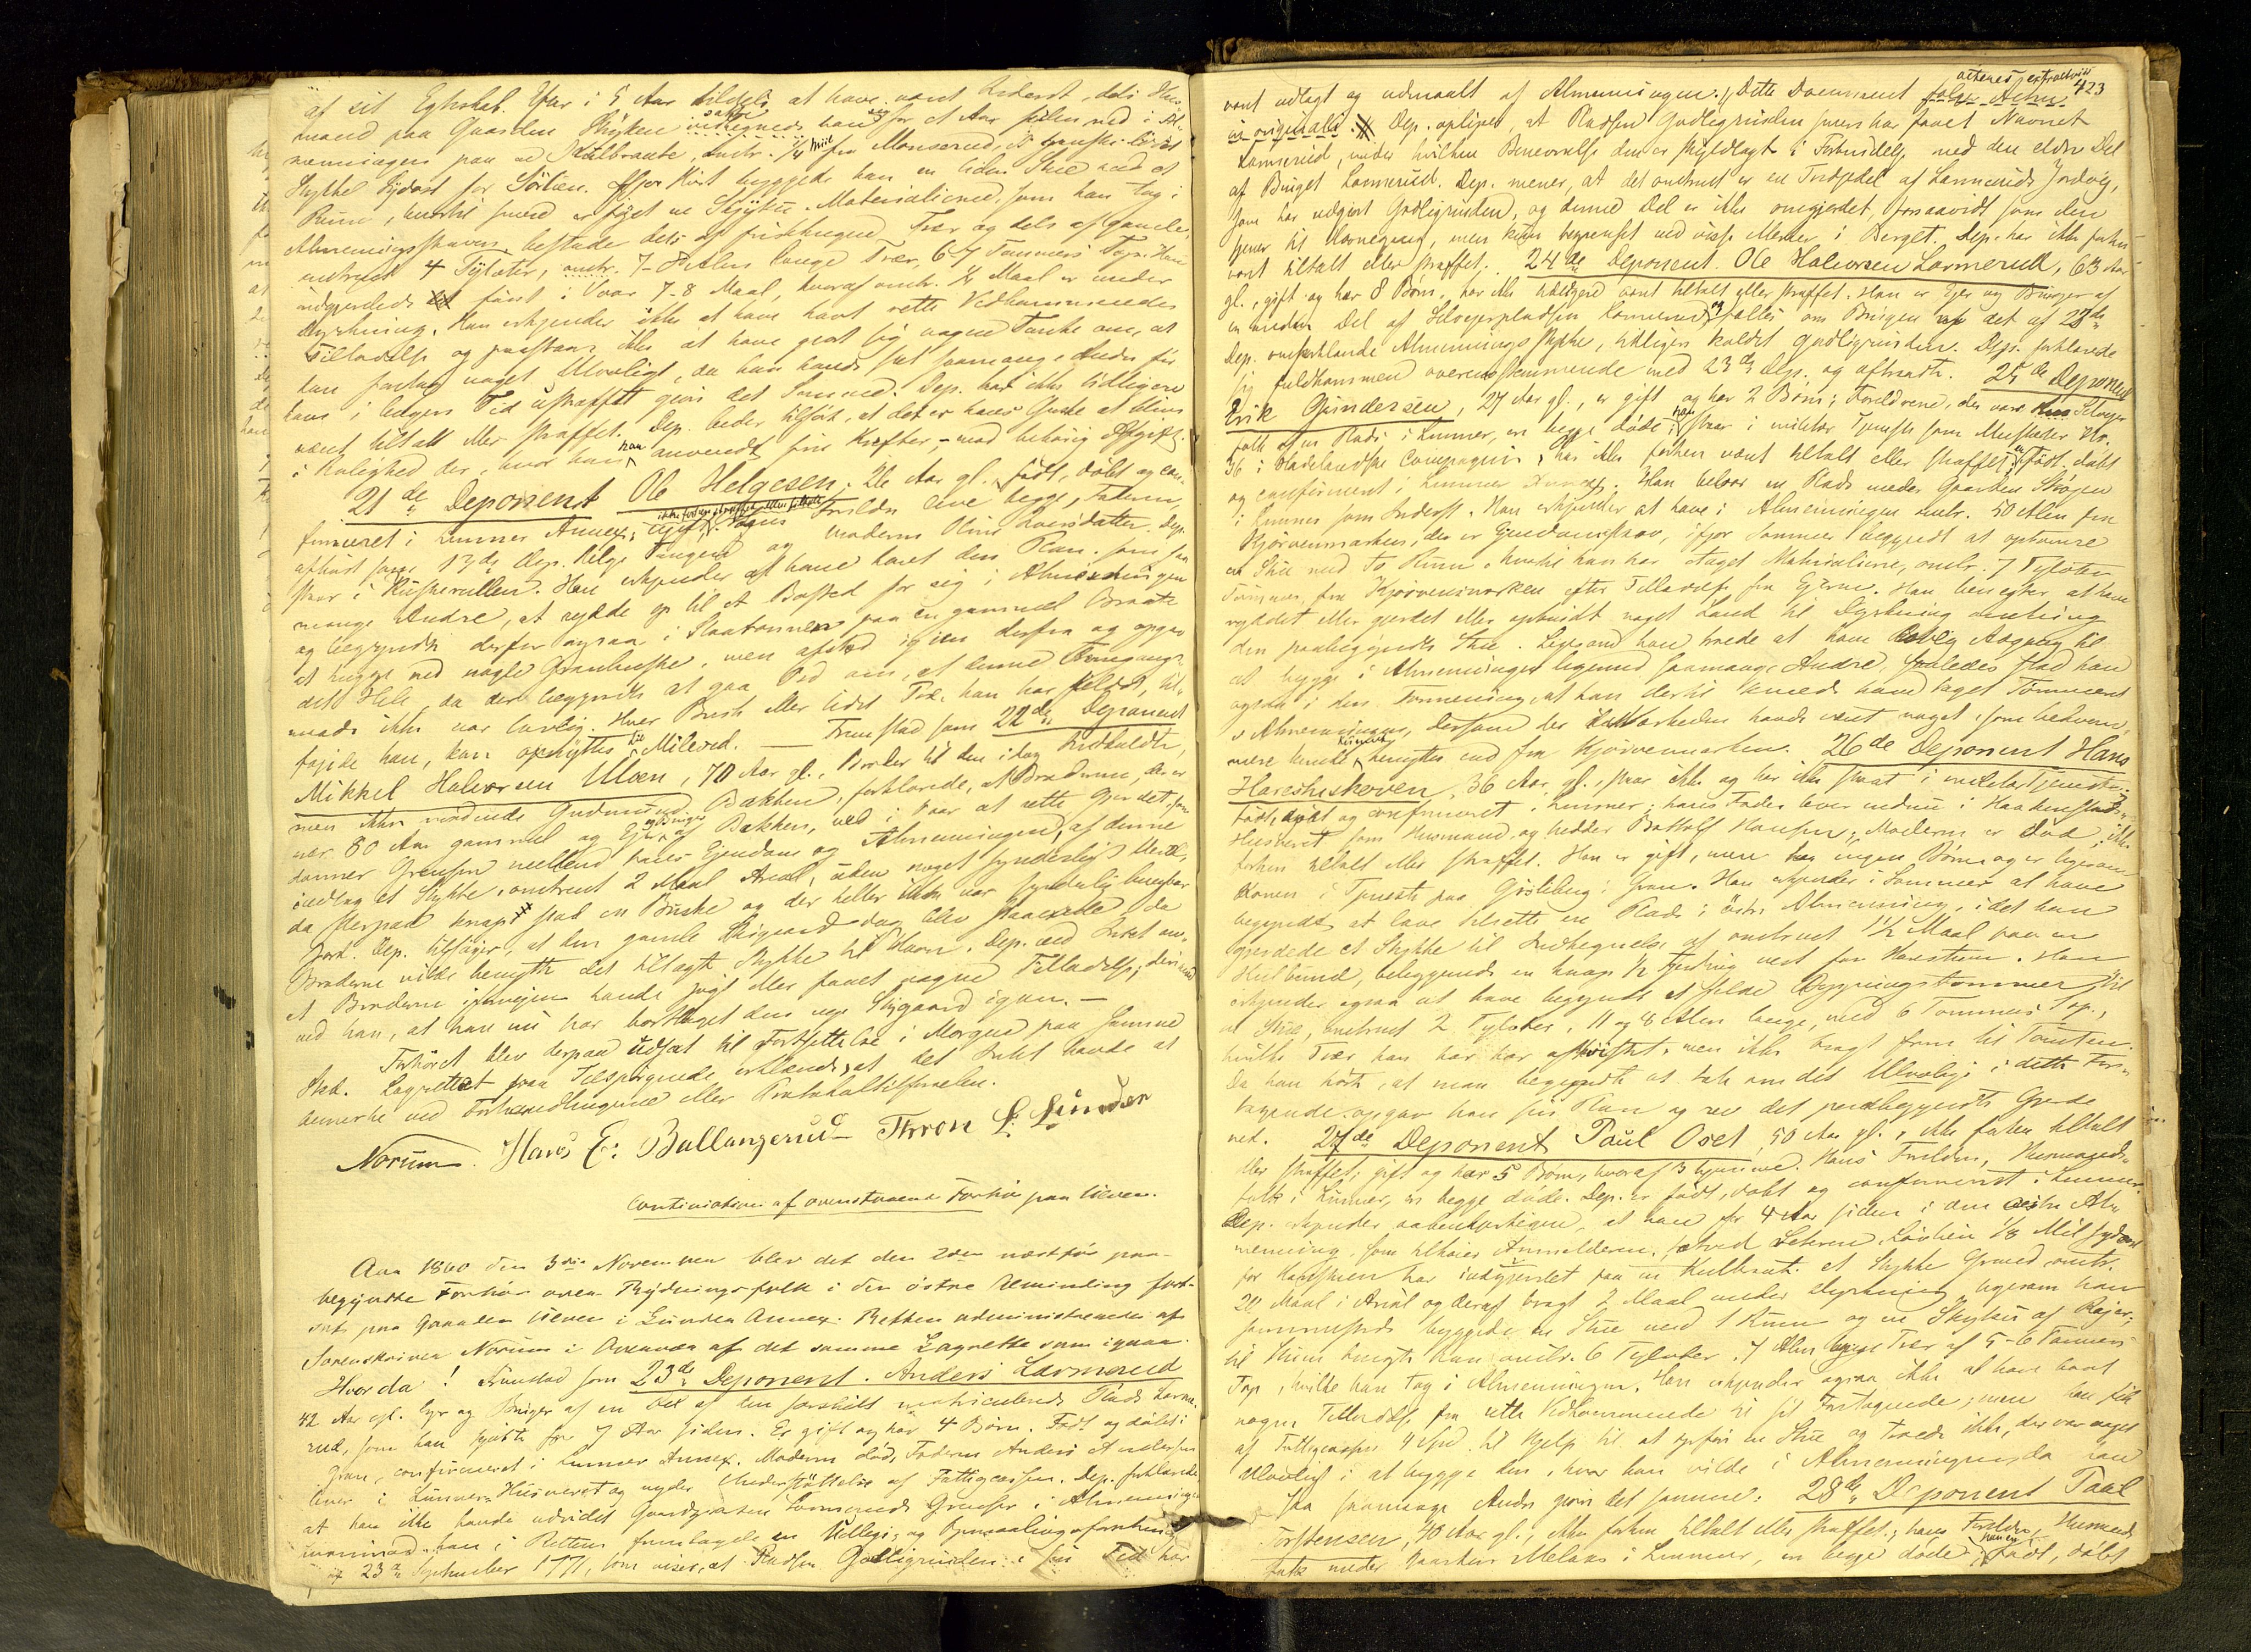 af sit Egteskab. Efter i 5 Aar tildels at have været Inderst, dels Hus-
mand paa Gaarden Skyken satte han sig for et Aar siden ned i Al-
menningen paa en Kulbraate, omtr. 1/4 Miil fra Monserud,
Stykke Sydost for Sörlien. Ifjor Höst byggede han en liden Stue med et
Rum, hvortil senere er föiet en Skyku. Materialierne, som han tog i
Almenningsskoven, bestode dels af friskhugne Trær og dels af gamle,
omtrent 4 Tylvter, omtr. 7-8 Alen lange Trær, 6-7 Tommers Top. Han
indgjerdede först i Vaar 7-8 Maal, hvoraf omtr. 1/4 Maal er under
Dyrkning. Han erkjender ikke at have havt rette Vedkommendes
Tilladelse og paastaar ikke at have gjort sig nogen Tanke om, at
han foretog noget Ulovligt, da han havde seet saamange Andre för
ham i længere Tid ustraffet gjöre det Samme. Dep. har ikke tidligere
været tiltalt eller straffet. Dep. beder tilfört, at det er hans Önske at blive
i Rolighed der, hvor han har anvendt sine Kræfter, mod behörig Afgift.
21de Deponent Ole Helgesen, 26 Aar gl., födt, döbt og con-
firmeret i Lunner Annex, ugift, ikke forhen straffet eller tiltalt. Forældre leve begge, Faderen,
afhört som 17de Dep. Helge Tangen og Moderen Oline Larsdatter. Dep.
staar i Kuskerullen. Han erkjender at have havt den Plan, som saa
mange Andre, at rydde op til et Bosted for sig i Almenningen
og begyndte derfor ogsaa i Slaabonnen paa en gammel Braate
at hugge ned nogle Granbuske, men afstod igjen derfra og opgav
det Hele, da der begyndte at gaa Ord om, at denne Fremgangs-
maade ikke var lovlig. Hver Busk eller lidet Træ, han har fældet, til-
föiede han, kan opnyttes til Mileved. — Fremstod som 22de Deponent
Mikkel Halvorsen Ulven, 70 Aar gl., Broder til den idag Indkaldte,
men ikke mödende Gudmund Bakken, forklarede, at Broderen, der er
nær 80 Aar gammel og Ejer og Bruger af Bakken, ved i Vaar at sette Gjerdet, som
danner Grænsen mellem hans Ejendom og Almenningen, af denne
indtog et Stykke, omtrent 2 Maal Areal, uden noget synderligt Værd,
da derpaa knapt stod en Buske og der heller ikke var synderlig brugbar
Jord. Dep. tilföier, at den gamle Skigard dog blev staaende da
Broderen vilde benytte det tillagte Stykke til Havn. Dep. ved Intet om,
at Broderen iforvejen havde sögt eller faaet nogen Tilladelse; derimod
ved han, at han nu har borttaget den nye Skigaard igjen. —
Forhöret blev derpaa udsat til Fortsættelse i Morgen paa samme
Sted. Lagrettet paa Tilspörgende erklærede, at det Intet havde at
bemerke ved Forhandlingerne eller Protokoltilförselen.
Norum. Hans E: Ballangerud Thron L. Lunder
Continuation af ovenstaaende Forhör paa Ulven.
Aar 1860 den 3die November blev det den 2den næstför paa-
begyndte Forhör over Rydningsfolk i den östre Alminding fort-
sat paa Gaarden Ulven i Lunder Annex. Retten administreredes af
Sorenskriver Norum i Overvær af det samme Lagrette som igaar.
Hvorda! Fremstod som 23de Deponent. Anders Larmerud
42 Aar gl. Ejer og Bruger af en Del af den særskilt matriculerede Plads Larme-
rud, som han kjöbte for 7 Aar siden. Er gift og har 4 Börn. Födt og döbt i
Gran, confirmeret i Lunner Annex. Moderen död, Faderen Anders Andersen
lever i Lunner Husværet og nyder Understöttelse af Fattigcassen. Dep. forklarede
at han ikke havde udvidet Gaardgrænsen Larmeruds Grænser i Almenningen
han i Retten fremlagde en Udlægs- og Opmaalingsforretning
af 23de September 1771, som viser, at Pladsen Godligrinden i sin Tid har
423
været udlagt og udmaalt af Almenningen. Dette Document achtes extractviis
in originali. Dep. oplyser, at Pladsen Godligrinden senere har faaet Navnet
Larmerud, under hvilken Benævnelse den er skyldlagt i Forbindelse med den ældre Del
af Bruget Larmerud. Dep. mener, at det omtrent er en Tredjedel af Larmeruds Jordvej,
som har udgjort Godligrinden, og denne Del er ikke omgjerdet, forsaavidt som den
tjener til Havnegang, men kun begrenset ved visse Merker i Berget. Dep. har ikke forhen
været tiltalt eller straffet. 24de Deponent. Ole Halvorsen Larmerud, 63 Aar
gl., gift og har 8 Börn, har ikke tidligere været tiltalt eller straffet. Han er Ejer og Bruger af
en anden Del af Selvejerpladsen Larmerud og fælles om Brugen af det af 23de
Dep. omforklarede Almenningsstykke, tidligere kaldet Godligrinden. Dep. forklarede
sig fuldkommen overensstemmende med 23de Dep. og aftraadte. 25de Deponent
Erik Gundersen, 27 Aar gl., er gift og har 2 Börn; Forældrene, der vare Selvejer-
folk af en Plads i Lunner, ere begge döde; han staar i militær Tjeneste som Musketer No.
36 i Hadelandske Compagnie, har ikke forhen været tiltalt eller straffet; er födt, döbt
og confirmeret i Lunner Annex. Han beboer en Plads under Gaarden Skögen
i Lunner som Inderst. Han erkjender at have i Almenningen omtr. 50 Alen fra
Kjörvenmarken, der er Ejendomsskov, ifjor Sommer begyndt at optömre
en Stue med to Rum, hvortil han har taget Materialierne, omtr. 7 Tylvter
Tömmer, fra Kjörvenmarken efter Tilladelse fra Ejerne. Han benegter at have
ryddet eller gjerdet eller opbrudt noget Land til Dyrkning omkring
den paabegyndte Stue. Ligesom han troede at have lovlig Adgang til
at bygge i Almenningen ligesom saamange Andre, saaledes stod han
ogsaa i den Formening, at han dertil kunde have taget Tömmeret
i Almenningen, dersom der i Nærheden havde været noget, som bekvem-
mere kunde benyttes end fra Kjörvenmarken. 26de Deponent Hans
Harestuskoven, 36 Aar gl., staar ikke og har ikke staaet i militær Tjeneste.
Födt, döbt og confirmeret i Lunner; hans Fader lever endnu i Haakenstad
Husværet som Husmand, og hedder Bottolf Hansen; Moderen er död, ikke
forhen tiltalt eller straffet. Han er gift, men har ingen Börn og er ligesom
Konen i Tjeneste paa Gisleberg i Gran. Han erkjender i Sommer at have
begyndt at lave tilrette en Plads i östre Almenning, idet han
gjerdede et Stykke til Indhegnelse af omtrent 1½ Maal paa en
Kulbund, beliggende en knap ½ Fjerding vest for Harestuen. Han
erkjender ogsaa at have begyndt at fælde Bygningstömmer til
en Stue, omtrent 2 Tylvter, 11 og 8 Alen lange, med 6 Tommers Top,
hvilke Trær han har afkvistet, men ikke bragt frem til Tomten.
Da han hörte, at man begyndte at tale om det Ulovlige i dette Fore-
tagende, opgav han sin Plan og rev det paabegyndte Gjerde
ned. 27de Deponent Paul Oset, 50 Aar gl., ikke forhen tiltalt
eller straffet; gift og har 5 Börn, hvoraf 3 hjemme. Hans Forældre, Husmands-
folk i Lunner, er begge döde. Dep. er födt, döbt og confirmeret i Lunner.
Dep. erkjender aabenhjertigen, at han for 4 Aar siden i den östre Al-
menning, som tilhörer Anmelderen, 1/8 Mil sydvest
for Harestuen har indgjerdet paa en Kulbrat et Stykke Grund, omtr.
20 Maal i Areal og deraf bragt 2 Maal under Dyrkning, ligesom han
sammesteds byggede en Stue med 1 Rum og en Skyku af Rajer;
til Huset brugte han omtr. 6 Tylvter 7 Alen lange Trær af 5-6 Tommers
Top, hvilke han tog i Almenningen. Han erkjender ogsaa ikke at have havt
nogen Tilladelse fra rette Vedkommende til sit Foretagende; men han fik
af Fattigcassen 4 Spd. til Hjelp til at opföre en Stue og troede ikke, der var noget
Ulovligt i at bygge den, hvor han vilde i Almenningen, da han
saa saamange Andre gjöre det samme. 28de Deponent Paal
Torstensen, 40 Aar gl., ikke forhen tiltalt eller straffet; hans Forældre, Husmands-
folk under Gaarden Melaas i Lunner, er begge döde; han er födt, döbt